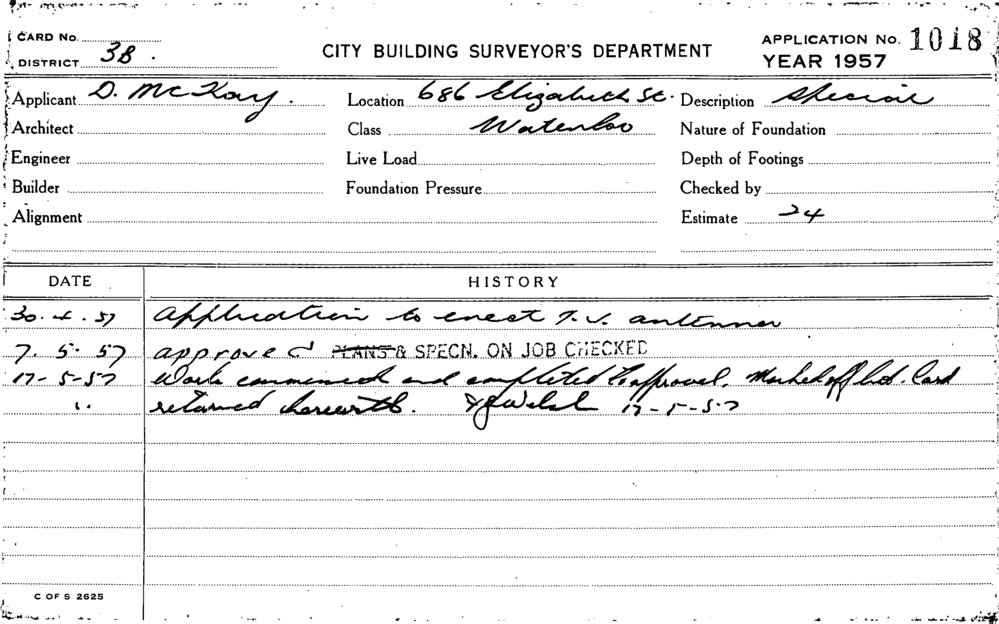 CARD No.
DISTRICT 3B.
CITY BUILDING SURVEYOR'S DEPARTMENT
APPLICATION No. 1018
YEAR 1957
Applicant D. McKay. Location 686 Elizabeth St. Description Special
Architect Class Waterloo Nature of Foundation
Engineer Live Load Depth of Footings
Builder Foundation Pressure Checked by
Alignment Estimate 24
DATE HISTORY
30.4.57 Application to erect T.V. antenner
7.5.57 approved PLANS & SPECN. ON JOB CHECKED
17-5-57 Work commenced and completed to approval. Marked off Card
" returned herewith. Welsh 17-5-57
C OF S 2625